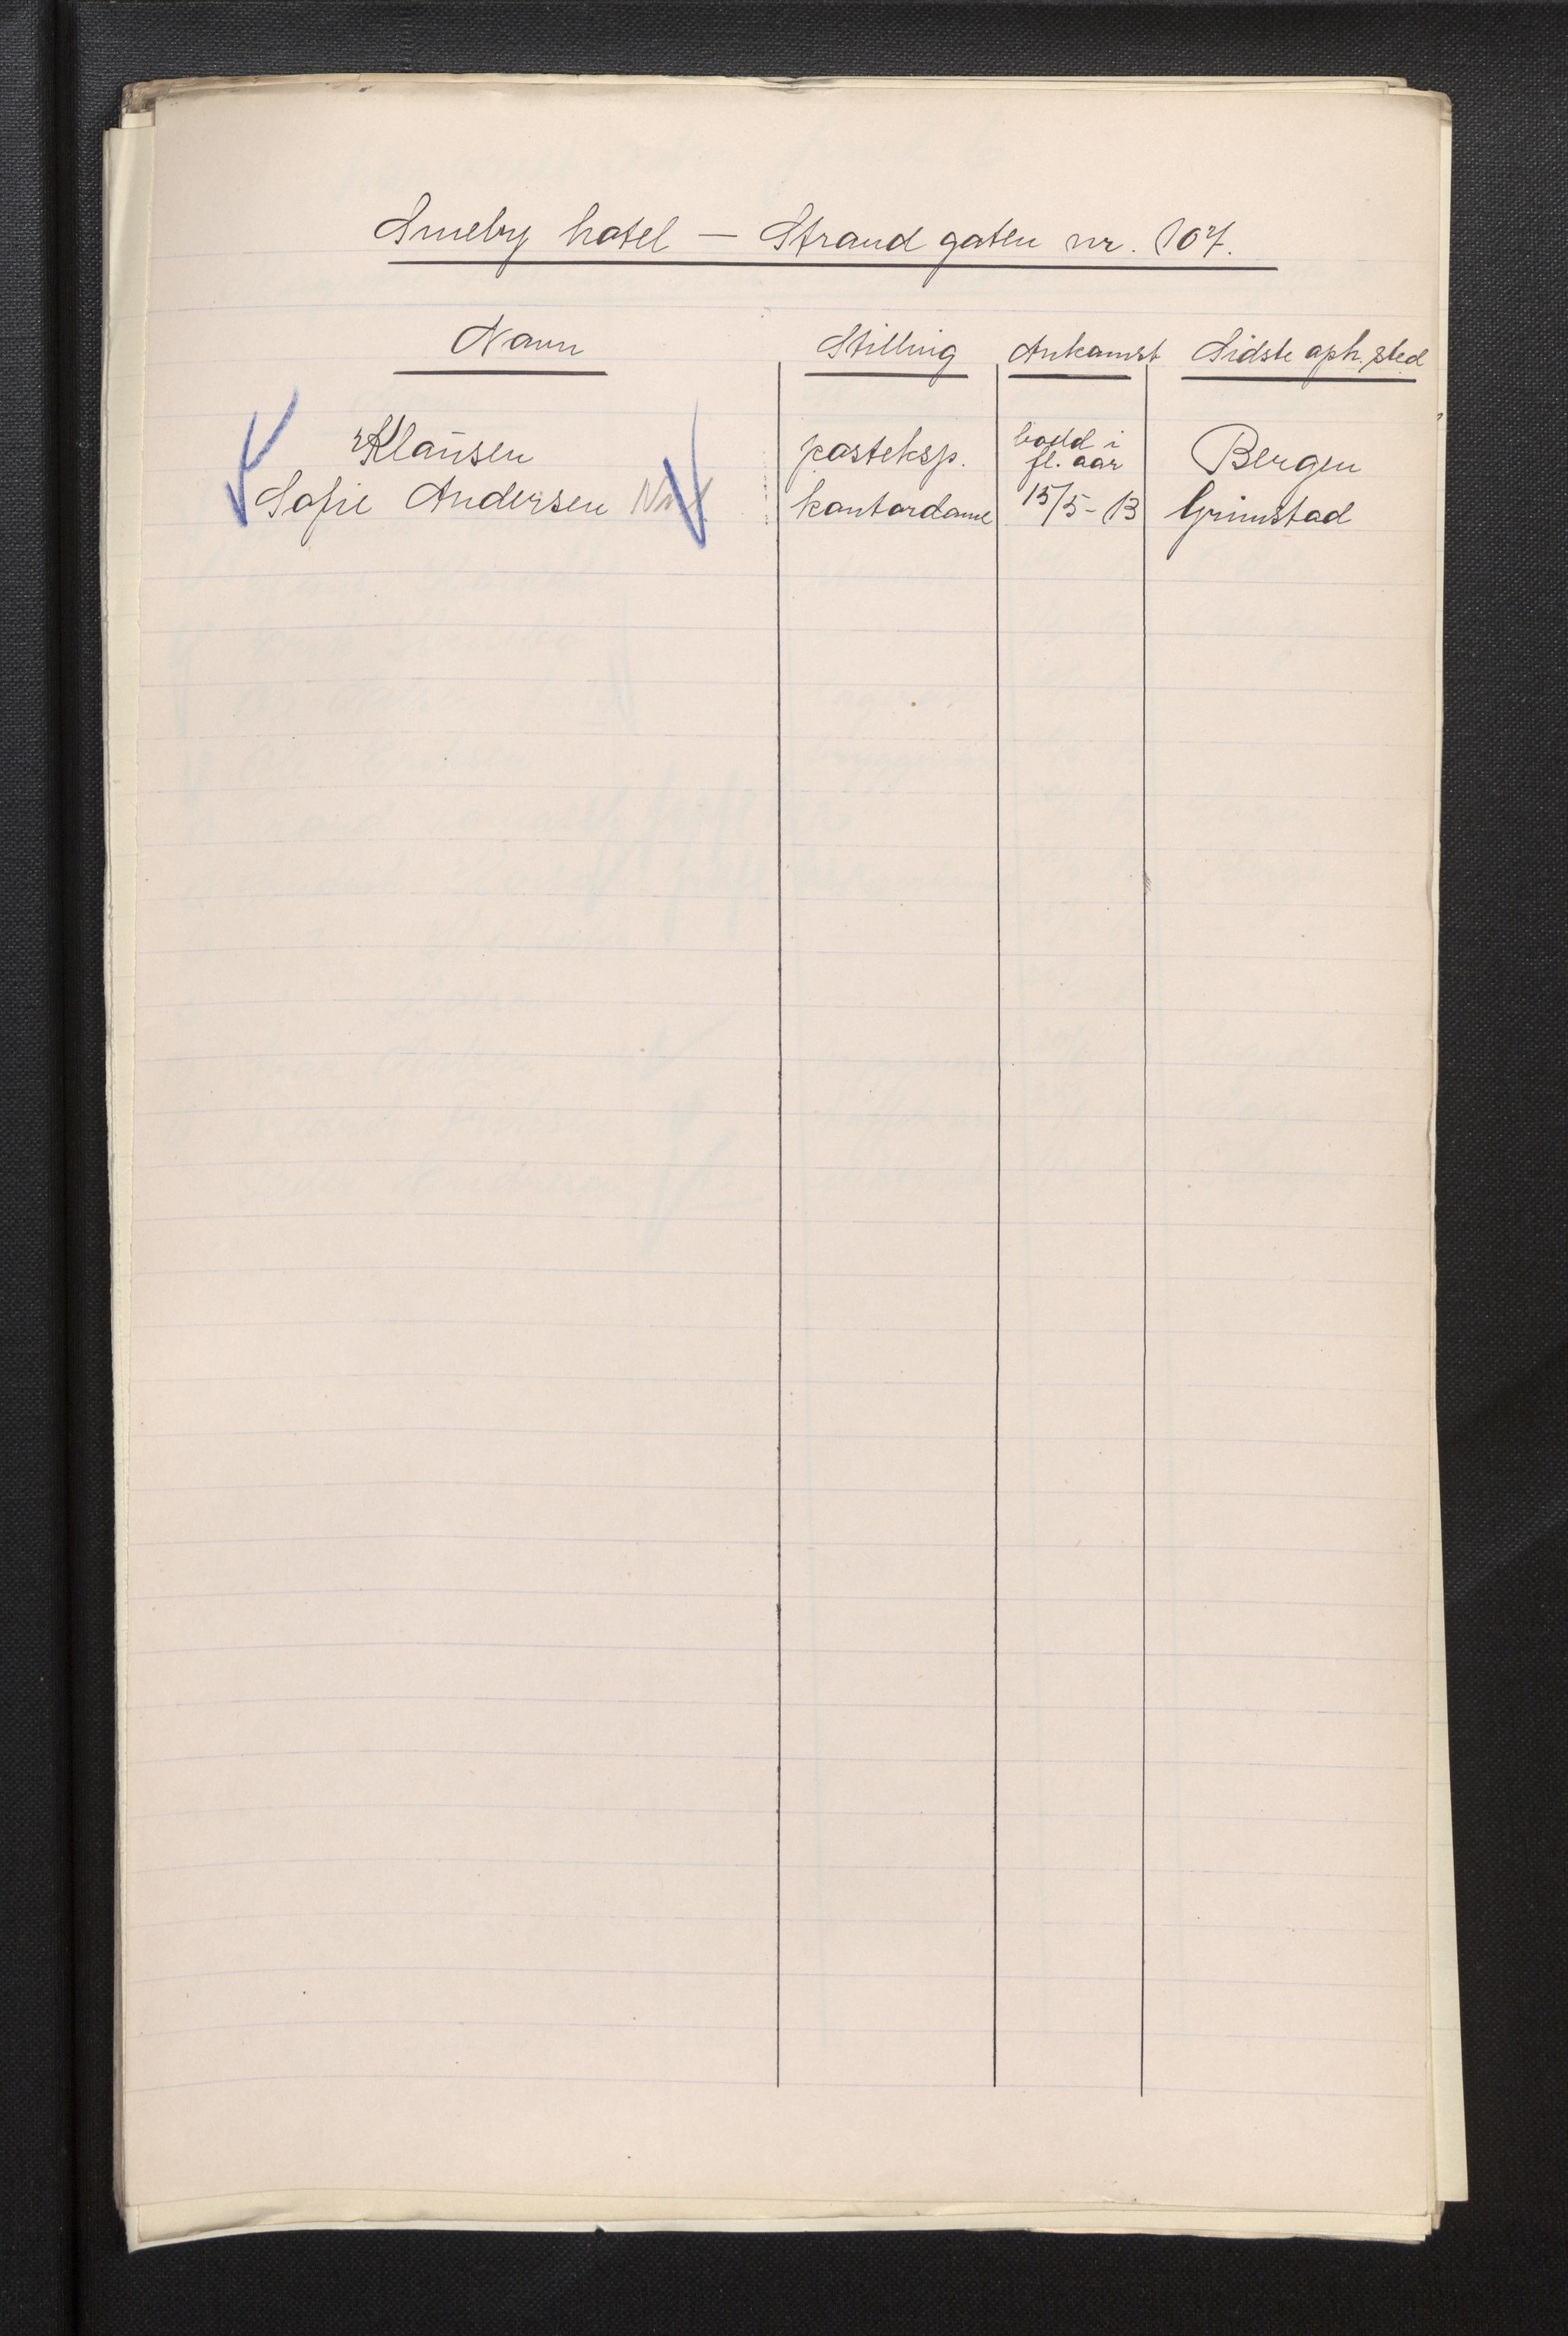 Smeby hotel — Strandgaten nr. 107.
Navn Stilling Ankomst Sidste oph. sted
Klausen posteksp. bodd i fl. aar Bergen
Sofie Andersen kontordame 15/5-13 Grimstad